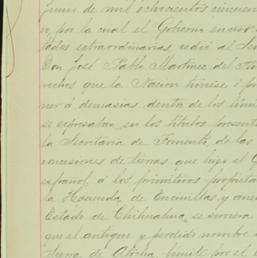 Junio de mil ochocientos cincuenta
por la cual el Gobierno en uso
tades extraordinarias, cedió al Señ
Don José Pablo Martinez del Rio
que la Nacion tuviese i pu
demasias dentro de los limi
se expresaban en los titulos present
la Secretaría de Fomento, de las
concesiones de tierras que hizo el G
español, á los primitivos propieta
la Hacienda de Encinillas y anex
Estado de Chihuahua, se
que el antiguo y perdido nombre
limite por el